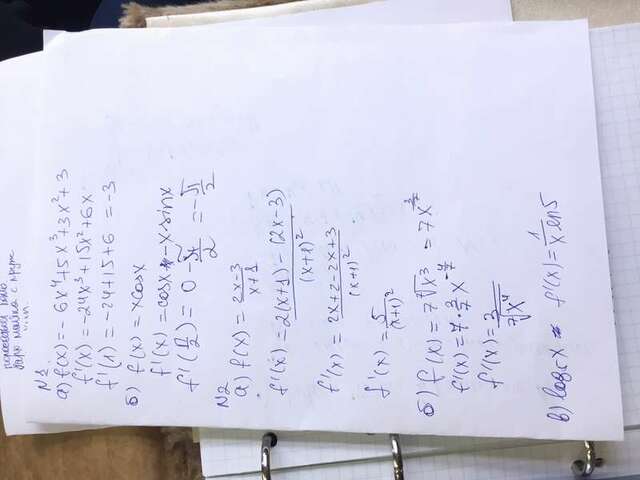 N1
а) f(x) = - 6x⁴+5x³+3x²+3
f'(x) = -24x³+15x²+6x
f'(1) = -24+15+6 = -3
б) f(x) = xcosx
f'(x) = cosx - x sinx
f'(π/2) = 0 - π/2 = -π/2
N2
а) f(x) = 2x-3/x+1
f'(x) = 2(x+1) - (2x-3)/(x+1)²
f'(x) = 2x+2-2x+3/(x+1)²
f'(x) = 5/(x+1)²
б) f(x) = 7 ⁷√x³ = 7x^3/7
f'(x) = 7·3/7 x^-4/7
f'(x) = 3/⁷√x⁴
в) log₅x f'(x) = 1/x ln5